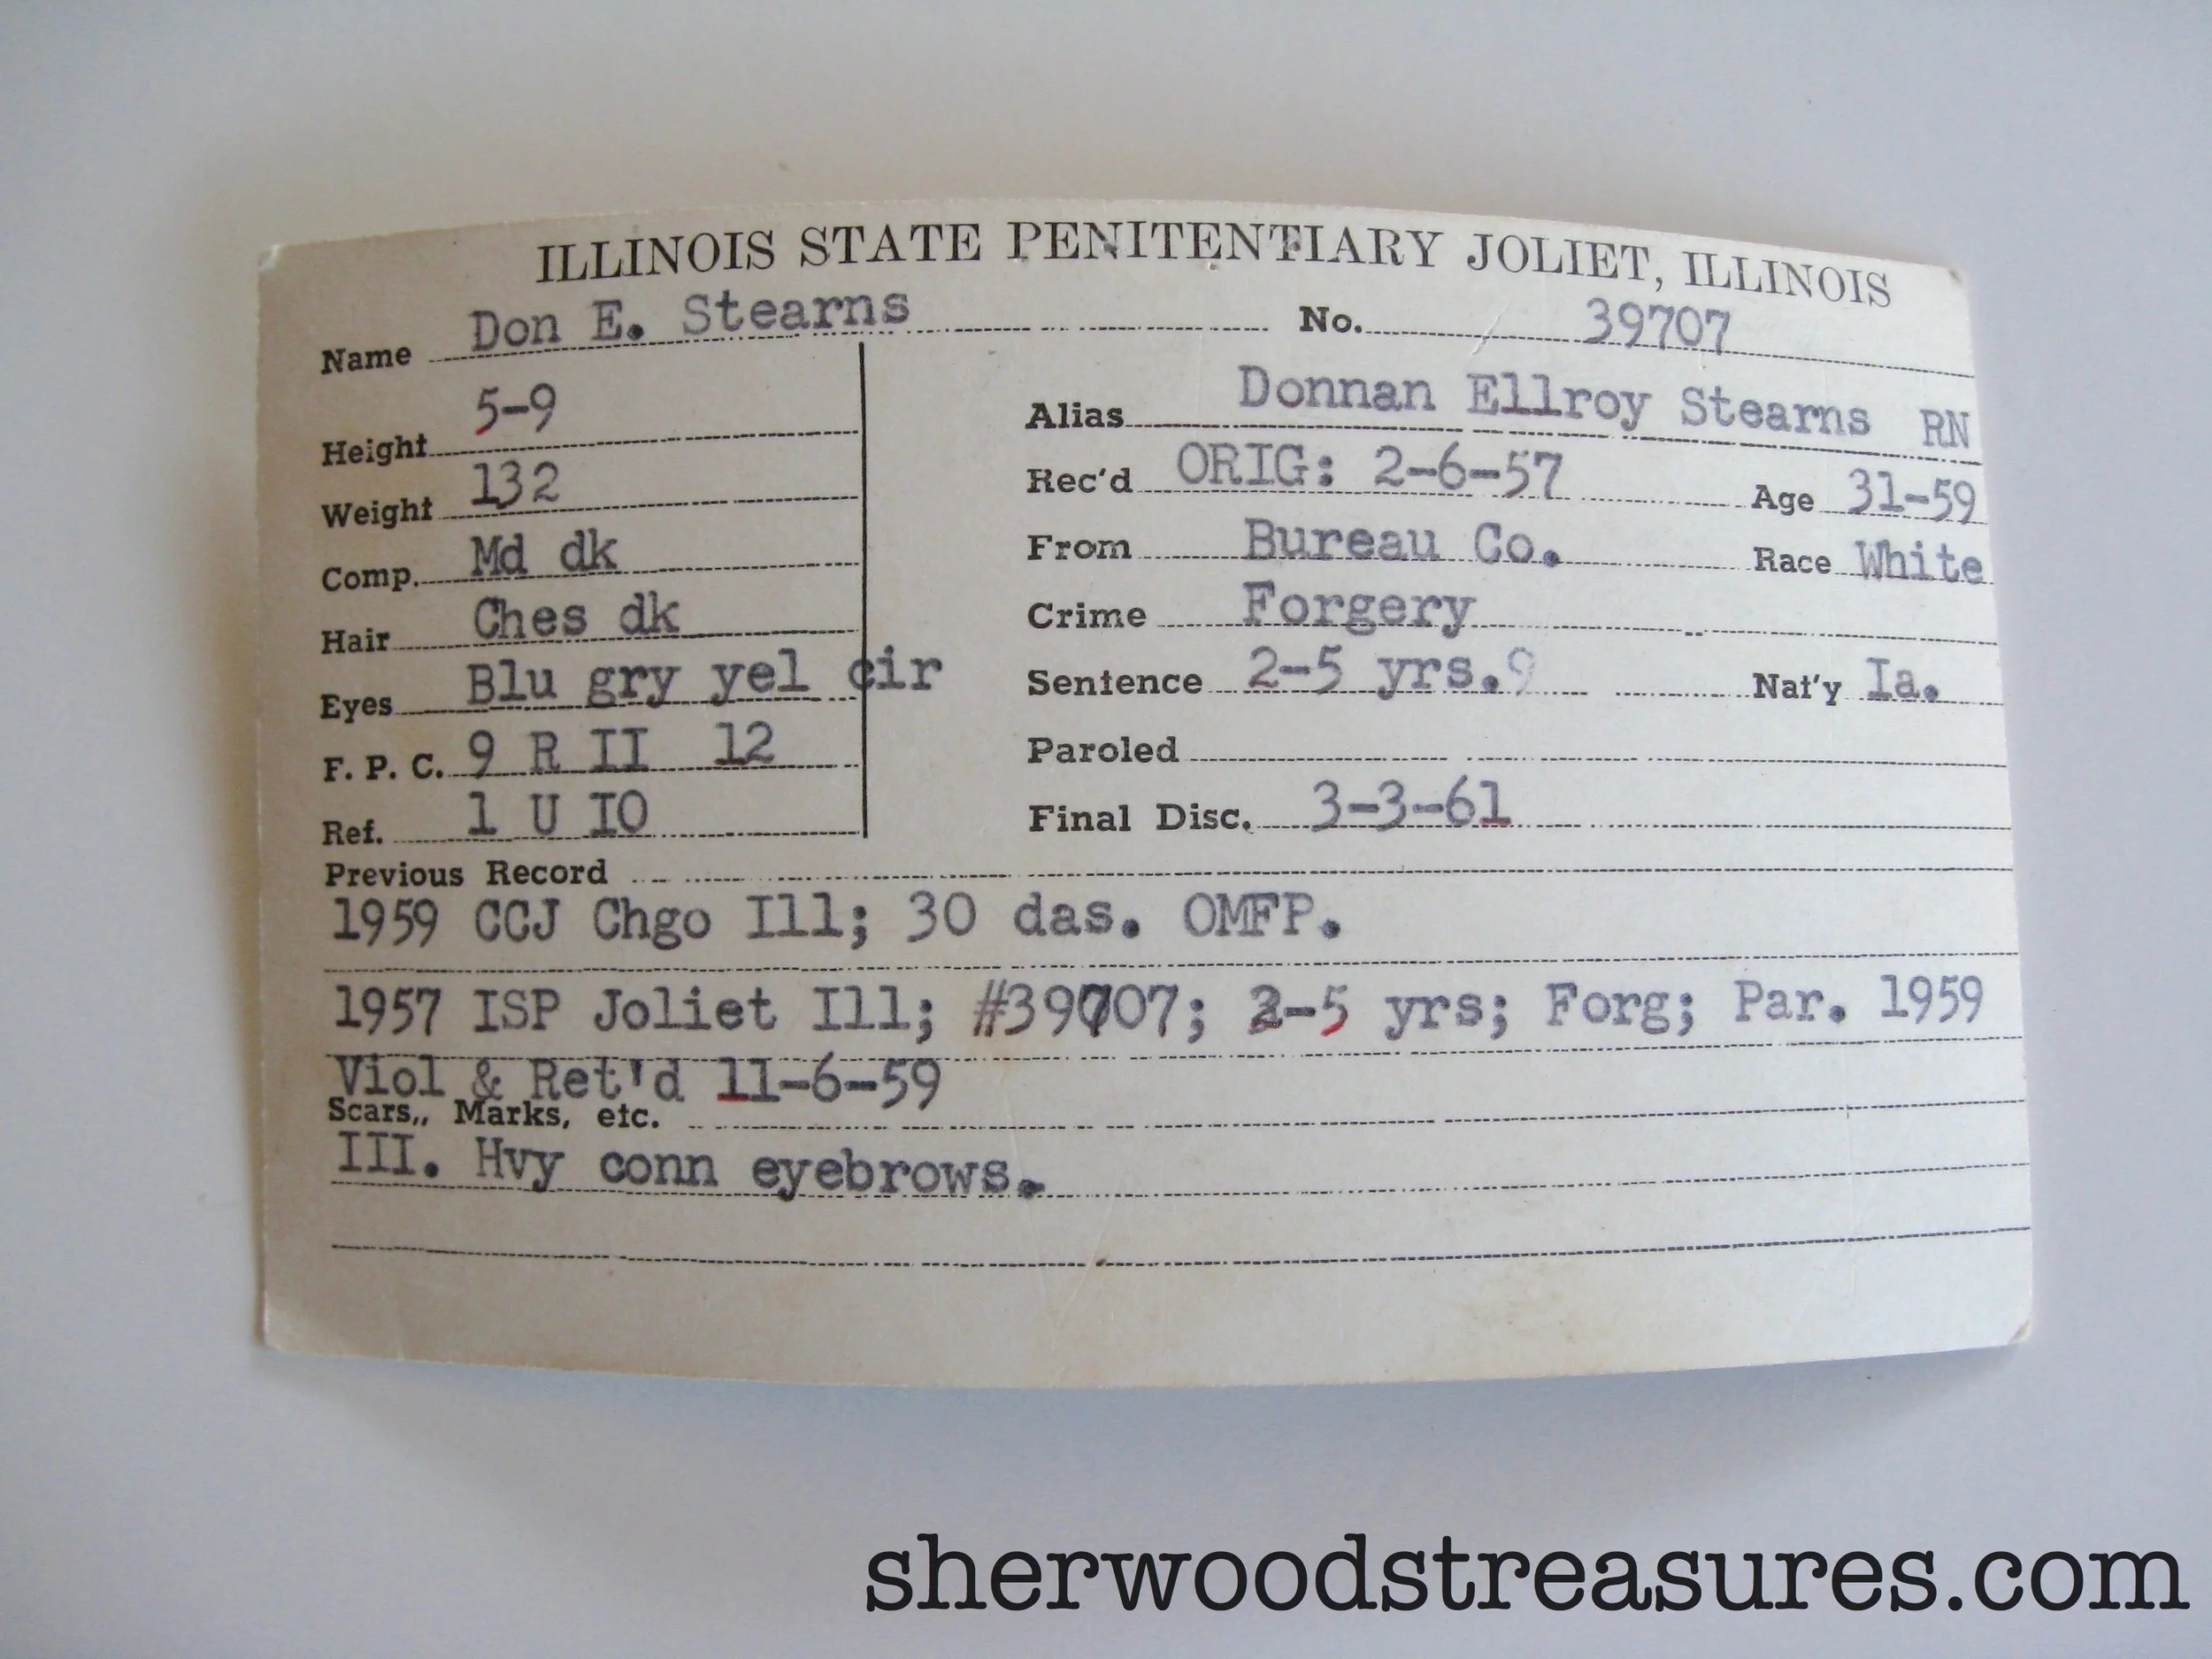 ILLINOIS STATE PENITENTIARY JOLIET, ILLINOIS
Name Don E. Stearns No. 39707
Height 5-9
Weight 132
Comp. Md dk
Hair Ches dk
Eyes Blu gry yel cir
F. P. C. 9 R II 12
Ref. 1 U IO
Alias Donnan Ellroy Stearns RN
Rec'd ORIG: 2-6-57 Age 31-59
From Bureau Co. Race White
Crime Forgery
Sentence 2-5 yrs.9 Nat'y Ia.
Paroled
Final Disc. 3-3-61
Previous Record
1959 CCJ Chgo Ill; 30 das. OMFP.
1957 ISP Joliet Ill; #39707; 2-5 yrs; Forg; Par. 1959
Viol & Ret'd 11-6-59
Scars,, Marks, etc.
III. Hvy conn eyebrows.
sherwoodstreasures.com